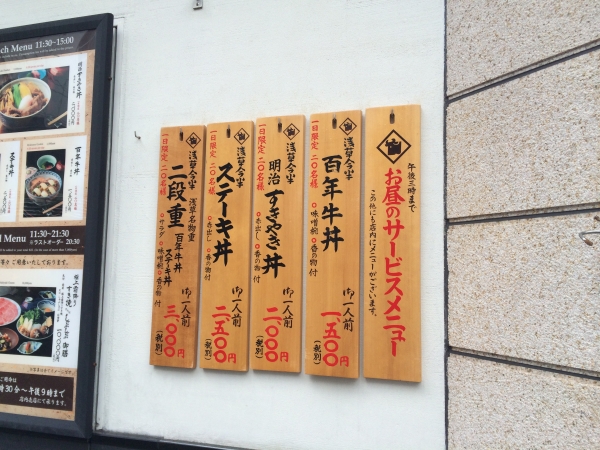 午後三時まで
お昼のサービスメニュー
この他にも店内にメニューがございます。
浅草今半
百年牛丼
一日限定 二〇名様
味噌椀
香の物付
御一人前
一、五〇〇円
(税別)
浅草今半
明治すきやき丼
一日限定 二〇名様
赤出し
香の物付
御一人前
二、〇〇〇円
(税別)
浅草今半
ステーキ丼
一日限定 二〇名様
赤出し
香の物付
御一人前
二、五〇〇円
(税別)
浅草今半
浅草名物重
二段重
百年牛丼
ステーキ丼
一日限定 二〇名様
サラダ
味噌椀
香の物付
御一人前
三、〇〇〇円
(税別)
ch Menu 11:30-15:00
百年牛丼
Menu
11:30-21:30
ラストオーダー 20:30
御膳
10,000円
30分～午後9時まで